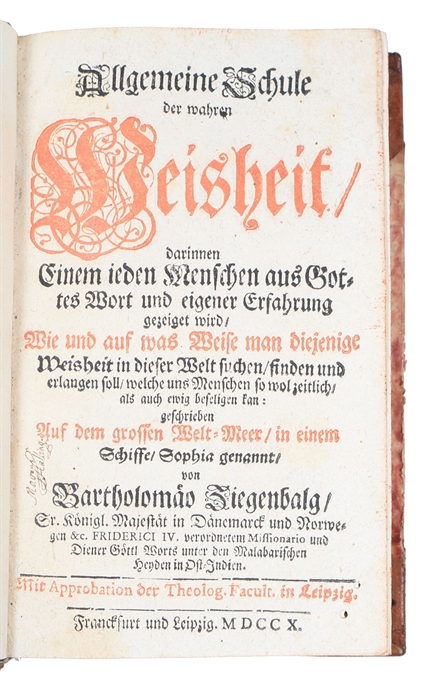 Allgemeine Schule
der wahren
Weisheit/
darinnen
Einem ieden Menschen aus Got-
tes Wort und eigener Erfahrung
gezeiget wird/
Wie und auf was Weise man diejenige
Weisheit in dieser Welt suchen/finden und
erlangen soll/welche uns Menschen so wol zeitlich/
als auch ewig beseligen kan:
geschrieben
Auf dem grossen Welt-Meer/in einem
Schiffe/Sophia genannt/
von
Bartholomäo Ziegenbalg/
Sr. Königl. Majestät in Dänemarck und Norwe-
gen &c. FRIDERICI IV. verordnetem Missionario und
Diener Göttl Worts unter den Malabarischen
Heyden in Ost-Indien.
Mit Approbation der Theolog. Facult. in Leipzig.
Franckfurt und Leipzig. MDCCX.